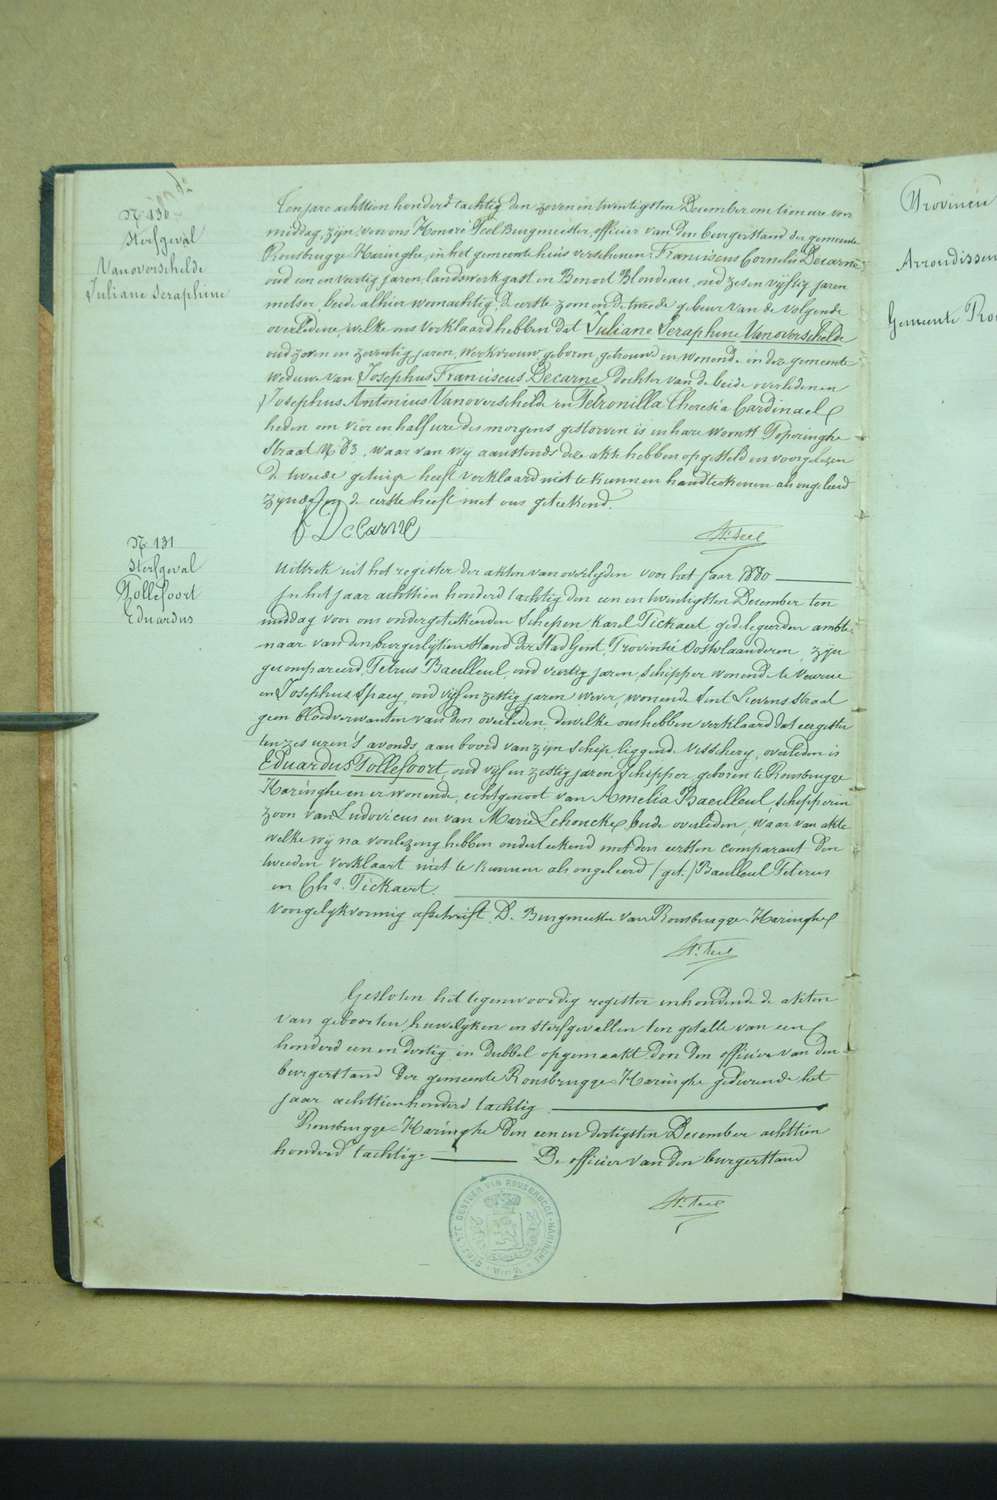 N 130
Sterfgeval
Vanoverschelde
Juliane Seraphine
Ten jare achttien honderd tachtig den zeven en twintigsten December om tien ure voor
middag, zijn voor ons Honoré Teel Burgmeester, officier van den burgerstand der gemeente
Rousbrugge Haringhe, in het gemeente huis verschenen Franciscus Cornelis Decarne
oud een en veertig jaren, landswerkgast en Benoot Blondeau, oud zes en vijftig jaren
metser beide alhier woonachtig, de eerste zoon en de tweede gebuer van de volgende
overledene, welke ons verklaard hebben dat Juliane Seraphine Vanoverschelde
oud zeven en zeventig jaren, werkvrouw, geboren, getrouwd en wonende in deze gemeente
weduwe van Josephus Franciscus Decarne, dochter van de beide overledenen
Josephus Antonius Vanoverschelde en Petronilla Theresia Cardinael
heden om vier en half ure des morgens gestorven is in hare woonst Poperinghe
Straat N 83, waar van wij aanstonds deze akte hebben opgesteld en voorgelezen
De tweede getuige heeft verklaard niet te kunnen handteekenen als ongeleerd
zijnde en de eerste heeft met ons geteekend.
F Decarne
Hre Teel
N 131
Sterfgeval
Tollefoort
Eduardus
Uittrek uit het register der akten van overlijden voor het jaar 1880
In het jaar achttien honderd tachtig den een en twintigsten December ten
middag voor ons ondergeteekenden Schepen Karel Tickaert gedelegeerden ambte-
naar van den burgerlijken Stand der Stad Gent, Provintie Oostvlaanderen, zijn
gecompareerd, Petrus Baeulleul, oud veertig jaren, schipper wonende te Veurne
en Josephus Spaey, oud vijf en zestig jaren wever, wonende Sint Lievens Straat
geen bloedverwanten van den overleden, dewelke ons hebben verklaard dat eergiste-
ten zes uren 's avonds aan boord van zijn schip liggende Visschery, overleden is
Eduardus Tollefoort, oud vijf en zestig jaren Schipper, geboren te Rousbrugge
Haringhe en er wonende, echtgenoot van Amelia Baeulleul, schipperin
zoon van Ludovicus en van Marie Lehoucke, beide overleden, waar van akte
welke wij na voorlezing hebben onderteekend met den eersten comparant den
tweeden verklaart niet te kunnen als ongeleerd (get.) Baeulleul Peterus
en Chs. Tickaert
voorgelykvormig afschrift De Burgmeester van Rousbrugge-Haringhe
Hre Teel
Gesloten het tegenwoordig register inhoudende de akten
van geboorten, huwelijken en sterfgevallen ten getalle van een
honderd een en dertig in dubbel opgemaakt door den officier van den
burgerstand der gemeente Rousbrugge-Haringhe gedurende het
jaar achttienhonderd tachtig
Rousbrugge-Haringhe den een en dertigsten December achttien
honderd tachtig.
De officier van den burgerstand
Hre Teel
Provincie
Arrondissem
Gemeente Rou